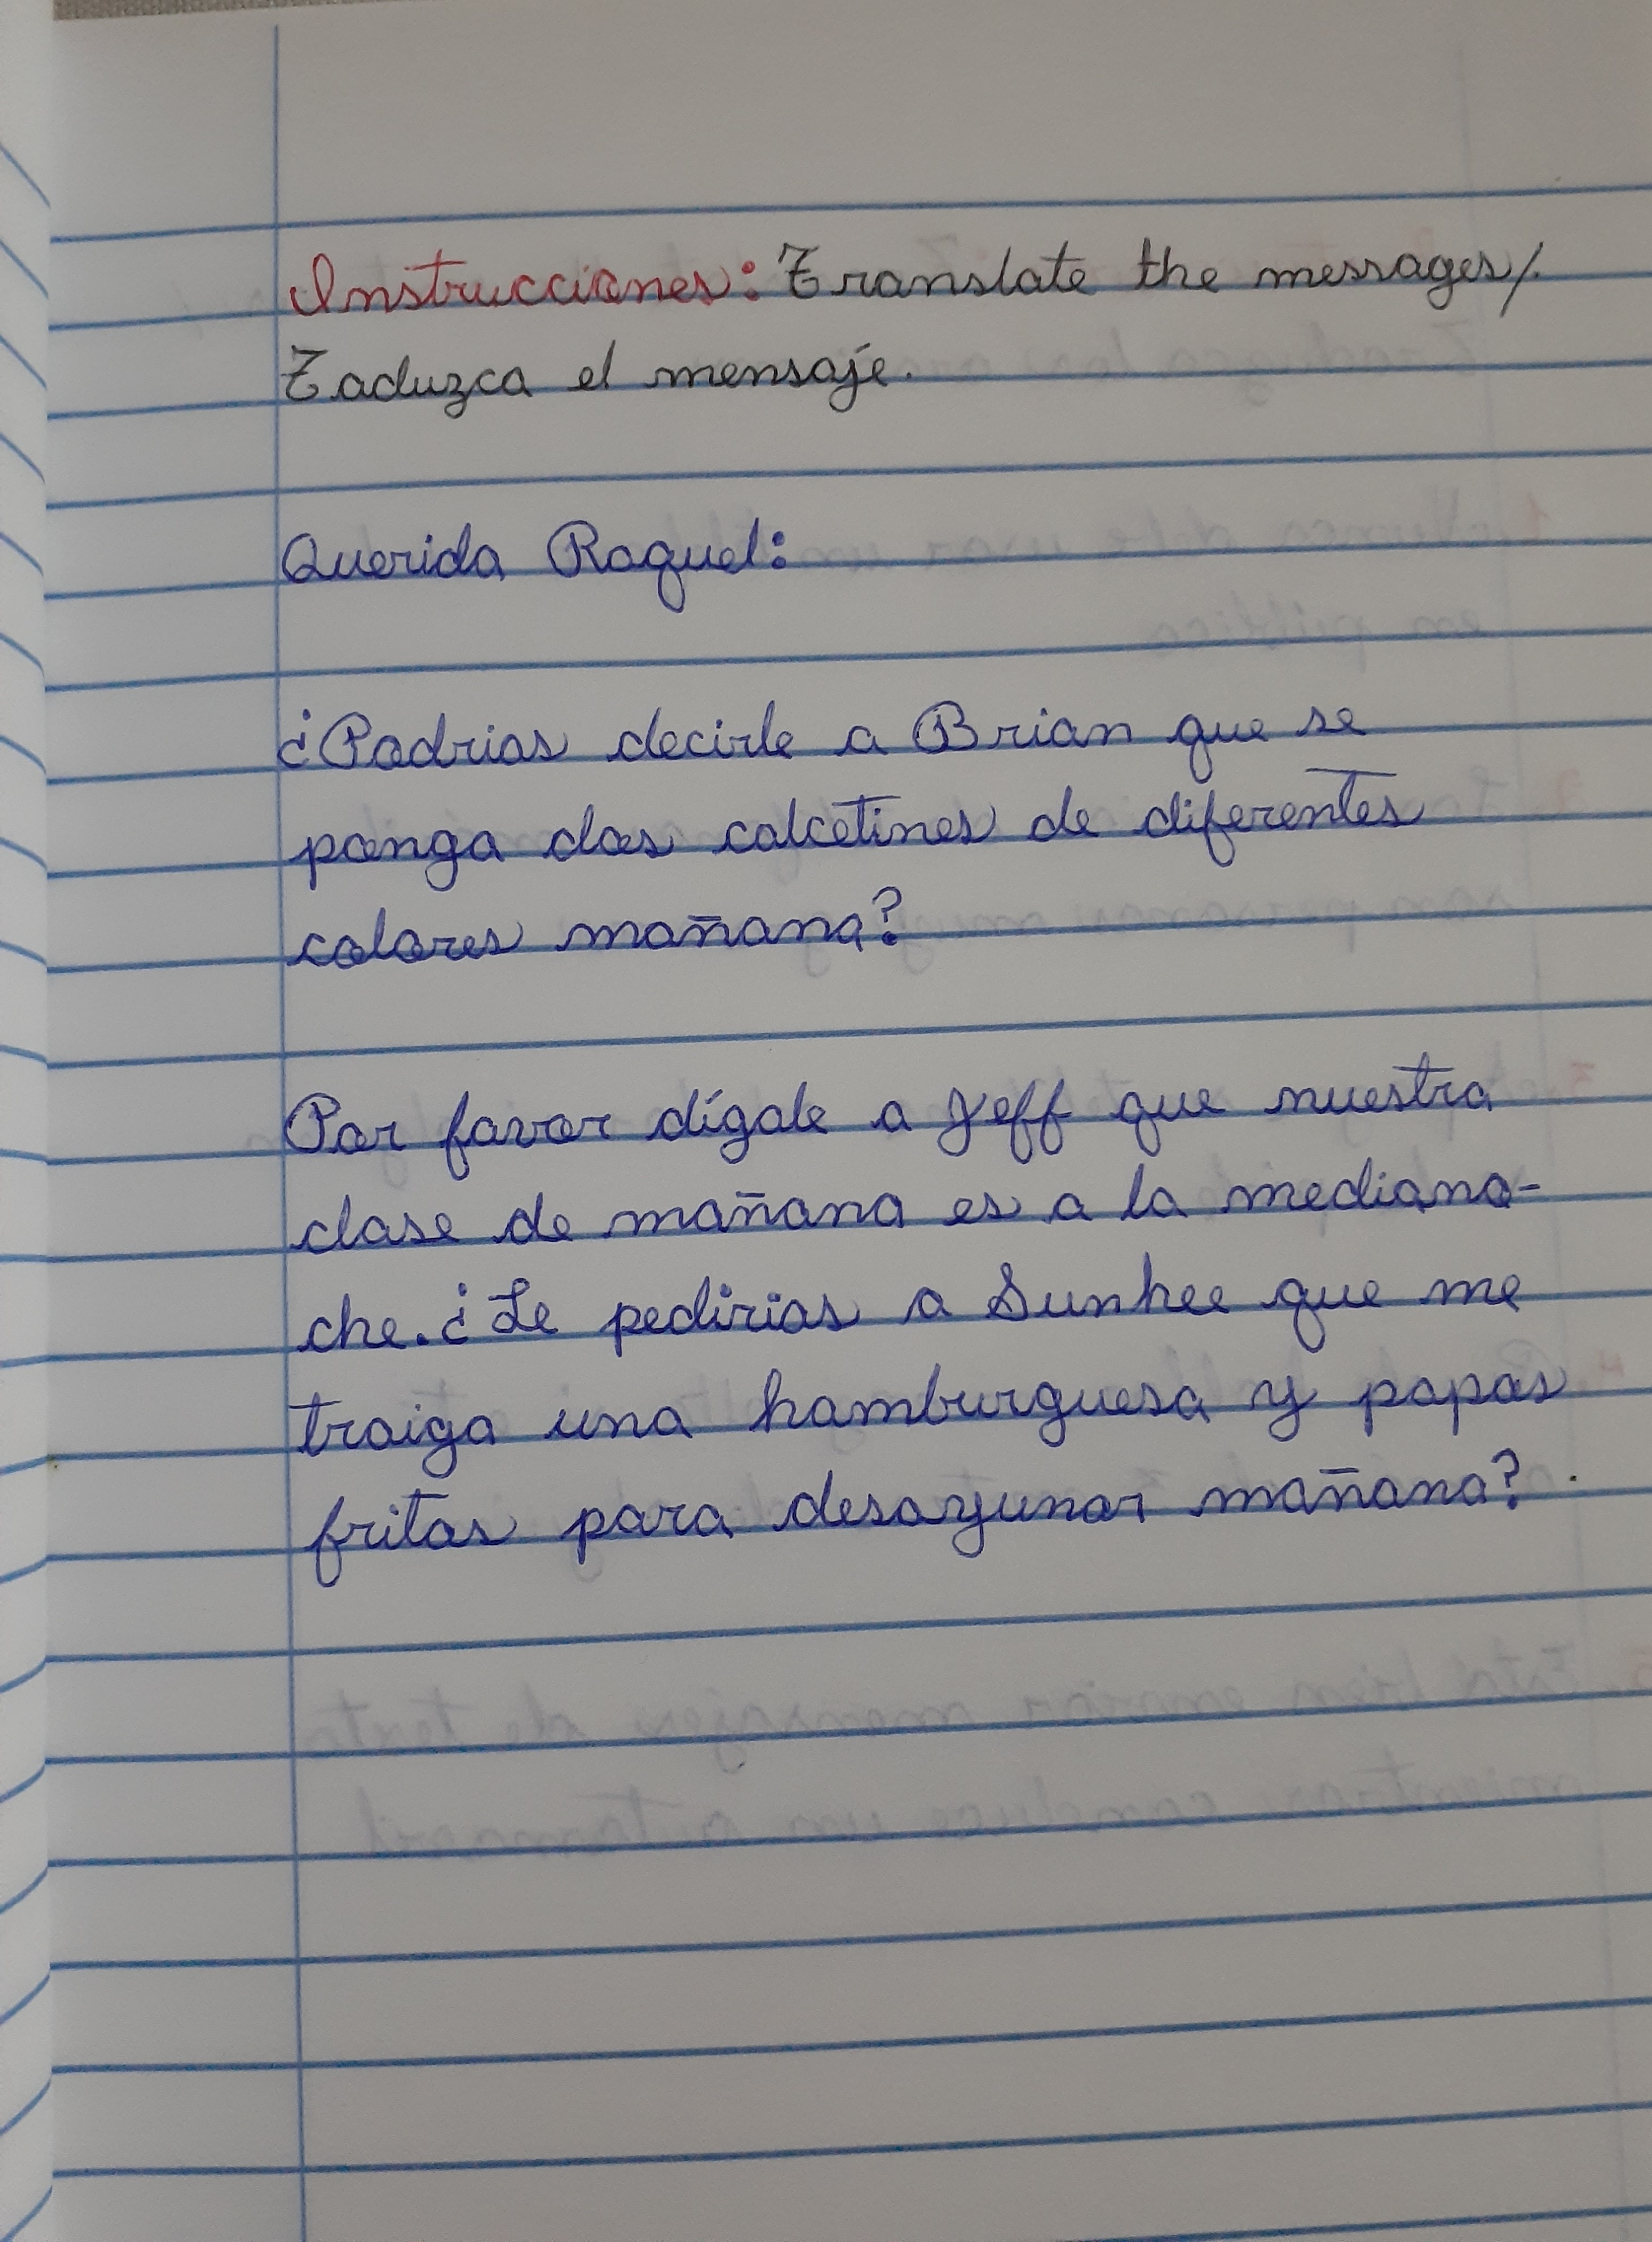 Instrucciones: Translate the messages/.
Taduzca el mensaje.
Querida Raquel:
¿Podrias decirle a Brian que se
ponga dos calcetines de diferentes
colores mañana?
Por favor dígale a Jeff que nuestra
clase de mañana es a la mediano-
che. ¿Le pedirias a Sunhee que me
traiga una hamburguesa y papas
fritas para desayunar mañana?